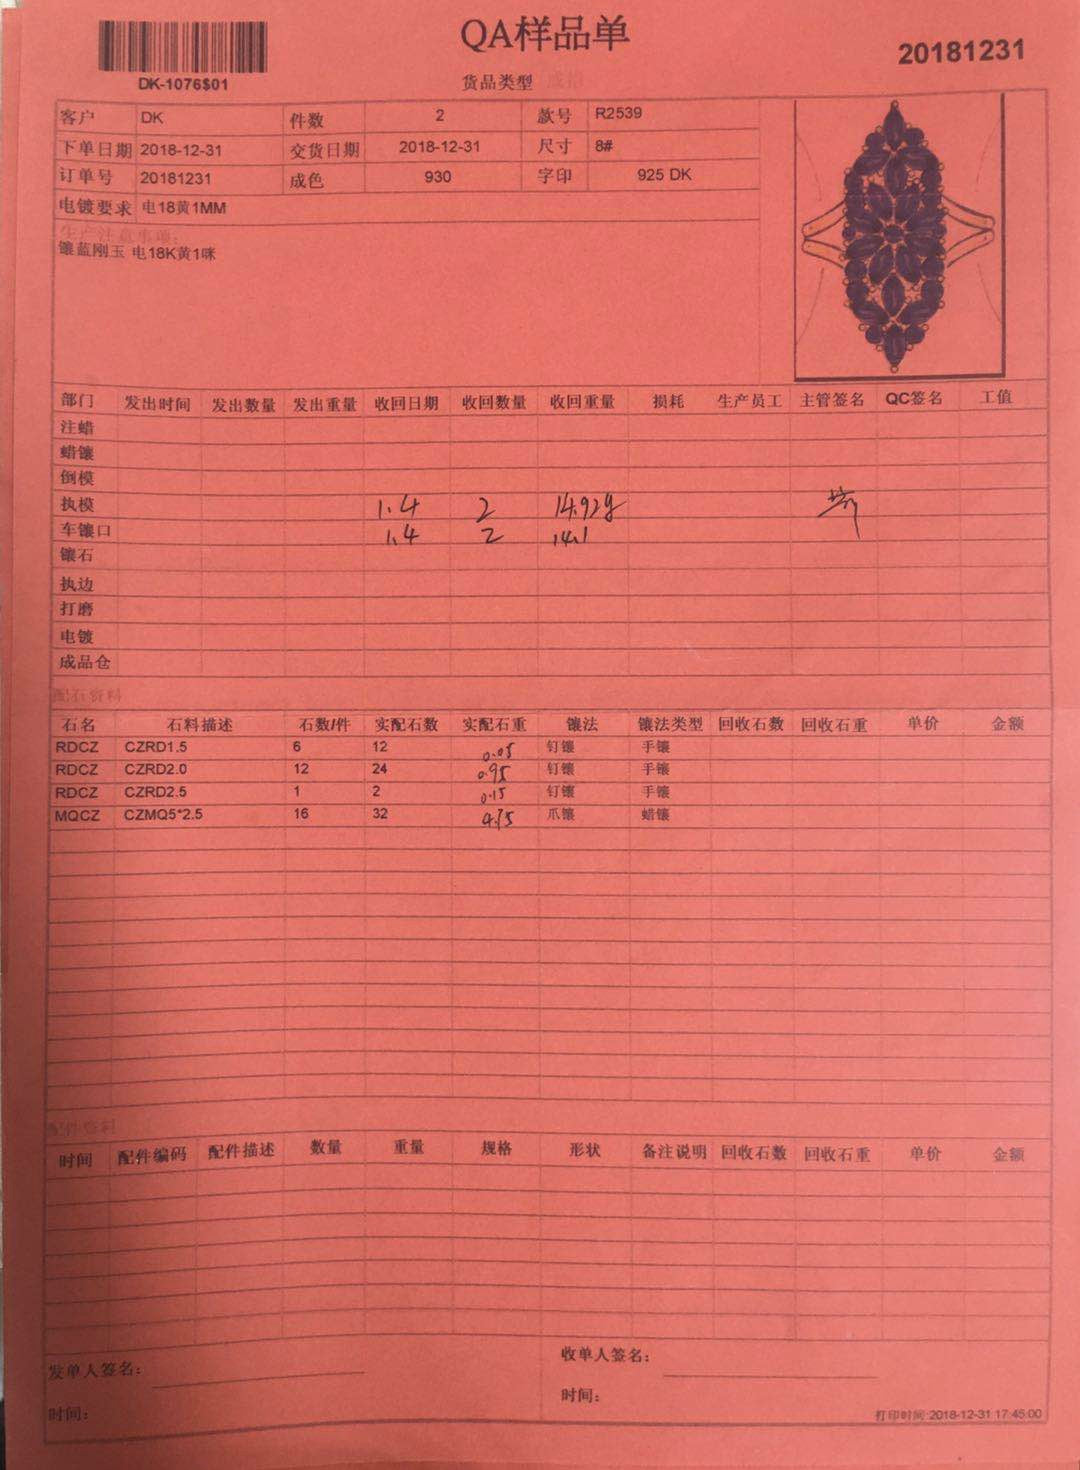 QA样品单
20181231
DK-1076$01
货品类型
客户 DK 件数 2 款号 R2539
下单日期 2018-12-31 交货日期 2018-12-31 尺寸 8#
订单号 20181231 成色 930 字印 925 DK
电镀要求 电18黄1MM
生产注意事项:
镶蓝刚玉 电18K黄1咪
部门 发出时间 发出数量 发出重量 收回日期 收回数量 收回重量 损耗 生产员工 主管签名 QC签名 工值
注蜡
蜡镶
倒模
执模 1.4 2 14.92g
车镶口 1.4 2 14.1
镶石
执边
打磨
电镀
成品仓
配石资料
石名 石料描述 石数/件 实配石数 实配石重 镶法 镶法类型 回收石数 回收石重 单价 金额
RDCZ CZRD1.5 6 12 0.05 钉镶 手镶
RDCZ CZRD2.0 12 24 0.95 钉镶 手镶
RDCZ CZRD2.5 1 2 0.15 钉镶 手镶
MQCZ CZMQ5*2.5 16 32 4.75 爪镶 蜡镶
配件资料
时间 配件编码 配件描述 数量 重量 规格 形状 备注说明 回收石数 回收石重 单价 金额
发单人签名: 收单人签名:
时间: 时间:
打印时间:2018-12-31 17:45:00